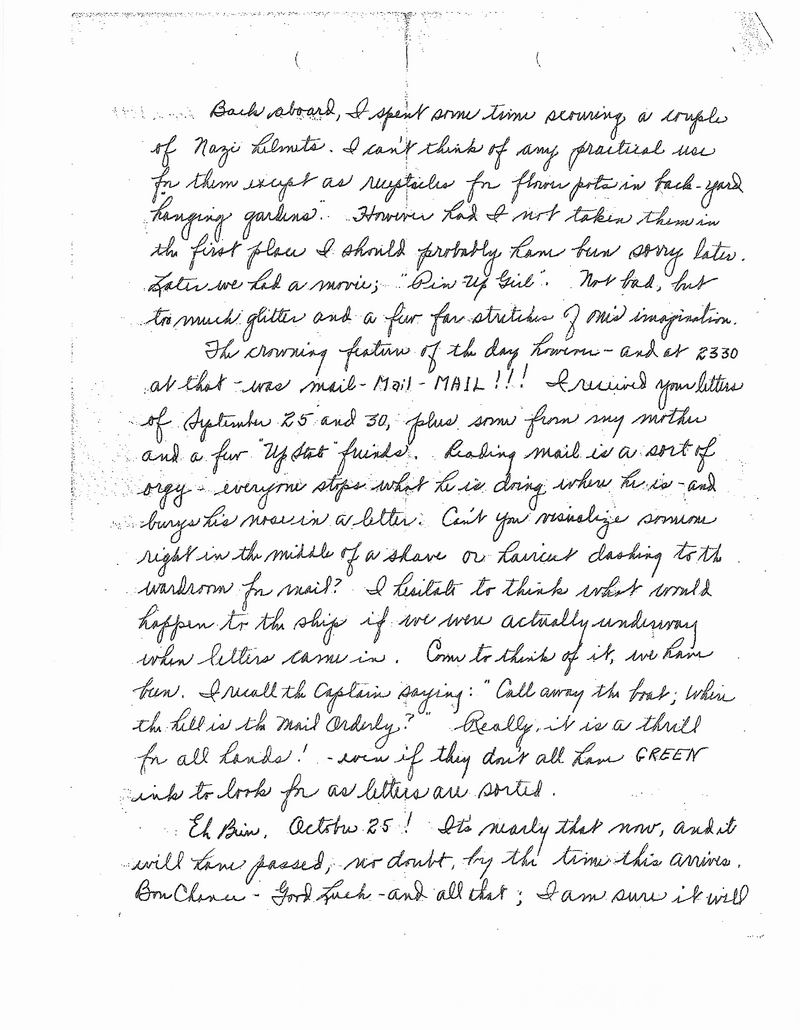 Back aboard, I spent some time scouring a couple
of Nazi helmets. I can't think of any practical use
for them except as receptacles for flower pots in back-yard
"hanging gardens". However had I not taken them in
the first place I should probably have been sorry later.
Later we had a movie; "Pin Up Girl". Not bad, but
too much glitter and a few far stretches of one's imagination.
The crowning feature of the day however - and at 2330
at that - was mail - Mail - MAIL!!! I received your letters
of September 25 and 30, plus some from my mother
and a few "Up State" friends. Reading mail is a sort of
orgy - everyone stops what he is doing where he is - and
burys his nose in a letter. Can't you visualize someone
right in the middle of a shave or haircut dashing to the
wardroom for mail? I hesitate to think what would
happen to the ship if we were actually underway
when letters came in. Come to think of it, we have
been. I recall the Captain saying: "Call away the boat; Where
the hell is the Mail Orderly?" Really, it is a thrill
for all hands! - even if they don't all have GREEN
ink to look for as letters are sorted.
Eh Bien. October 25! It's nearly that now, and it
will have passed, no doubt, by the time this arrives.
Bon Chance - Good Luck - and all that; I am sure it will